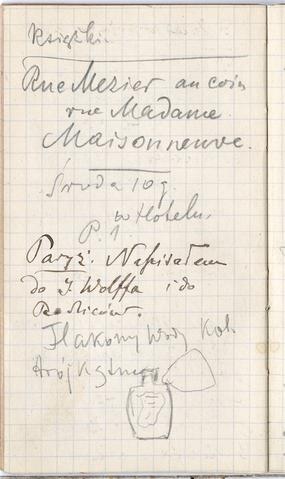 Książki.
Rue Mezier au coin
rue Madame
Maisonneuve.
Środa 10 g.
w Hotelu.
P. 1.
Paryż. Napisałem
do J. Wolffa i do
Rodziców.
Flakony Wody Kol.
trójkątny